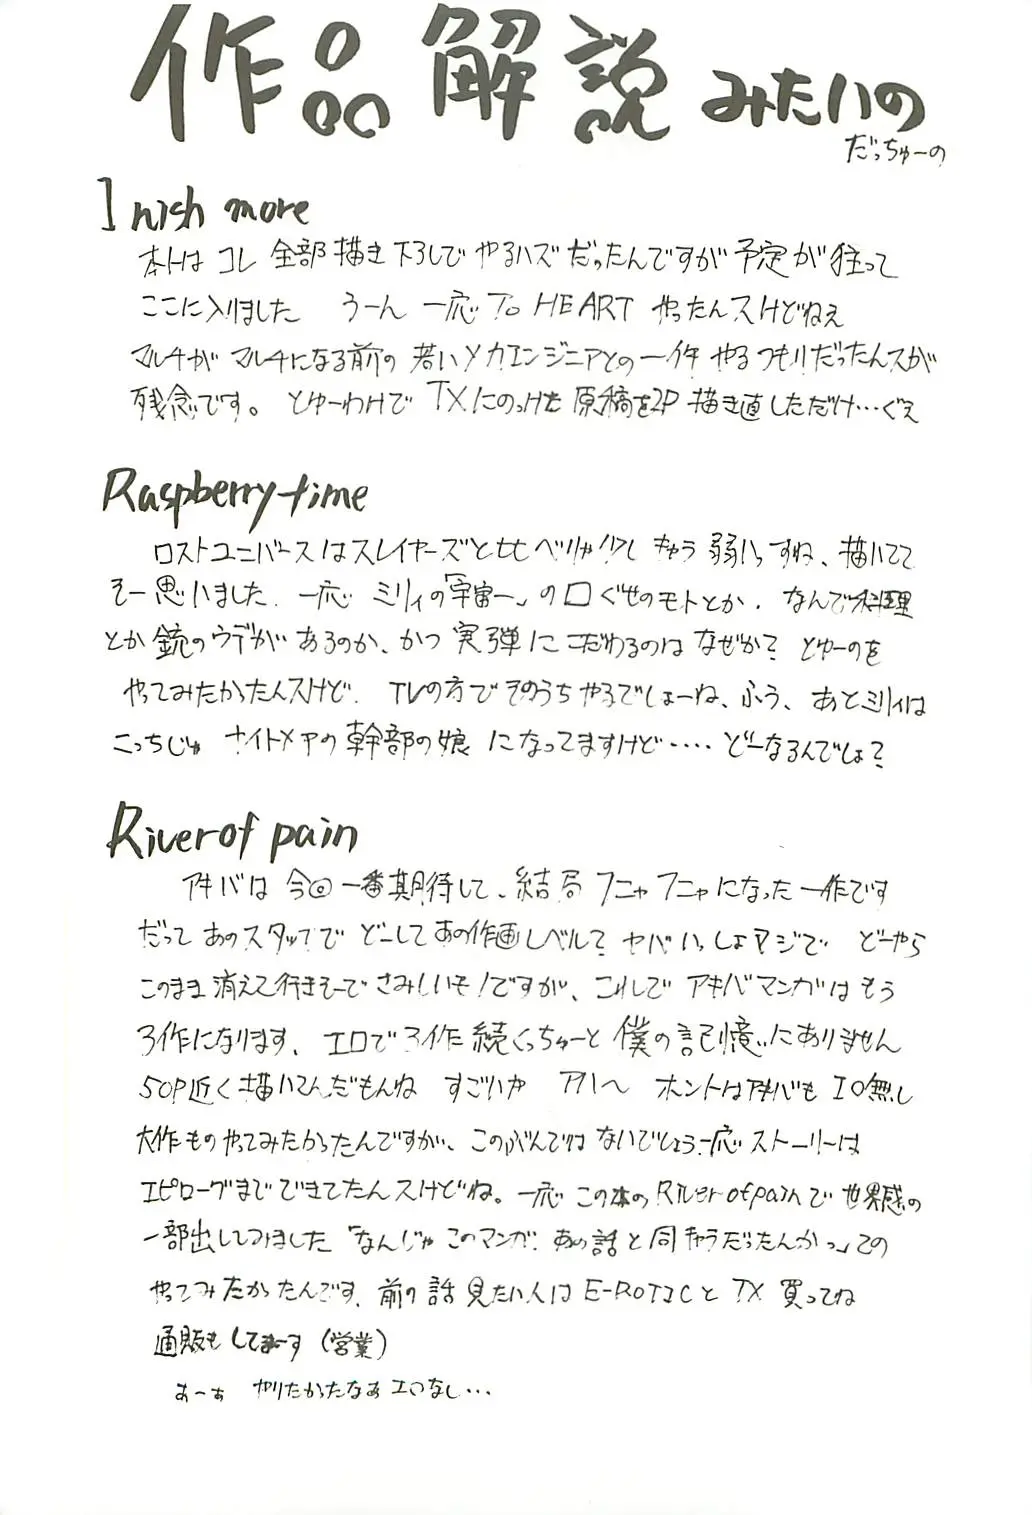 作品解説みたいの
だっちゅーの
I wish more
本トは コレ 全部描き下ろしで やるハズだったんですが 予定が狂って
ここに入りました うーん 一応 To HEART やったんスけどねぇ
マルチが マルチになる前の 若いメカエンジニアとの一件 やるつもりだったんスが
残念です。 とゆーわけで TXにのっけた 原稿を2P 描き直しただけ…ぐぇ
Raspberry time
ロストユニバースはスレイヤーズと比べりゃ 少し きゅう 弱いっすね、描いてて
そー思いました. 一応 ミリィの「宇宙一」の口ぐせのモトとか. なんで料理
とか 銃のウデが あるのか、かつ 実弾に こだわるのは なぜか? とゆーのを
やってみたかったんスけど. TVの方で そのうち やるでしょーね、ふう、 あとミリィは
こっちじゃ ナイトメアの幹部の娘 になってますけど‥‥ どーなるんでしょ?
River of pain
アキバは 今回一番期待して、結局 フニャフニャになった一作です
だって あのスタッフで どーして あの作画レベル? ヤバいっしょマジで どーやら
このまま 消えて行きそーで さみしいぞ!ですが、これで アキバマンガは もう
3作になります、エロで 3作 続くっちゅーと 僕の記憶にありません
50P近く描いてんだもんね すごいや アハハ ホントはアキバも エロ無し
大作もの やってみたかったんですが、このぶんでは ないでしょう.一応 ストーリーは
エピローグまで できてたんスけどね。一応 この本の River of painで 世界感の
一部出してみました 「なんじゃ このマンガ. あの話と同キャラだったんかっ」ての
やってみたかったんです. 前の 話 見たい人は E-ROTICと TX 買ってね
通販も してまーす (営業)
あーぁ やりたかったなぁ エロなし…